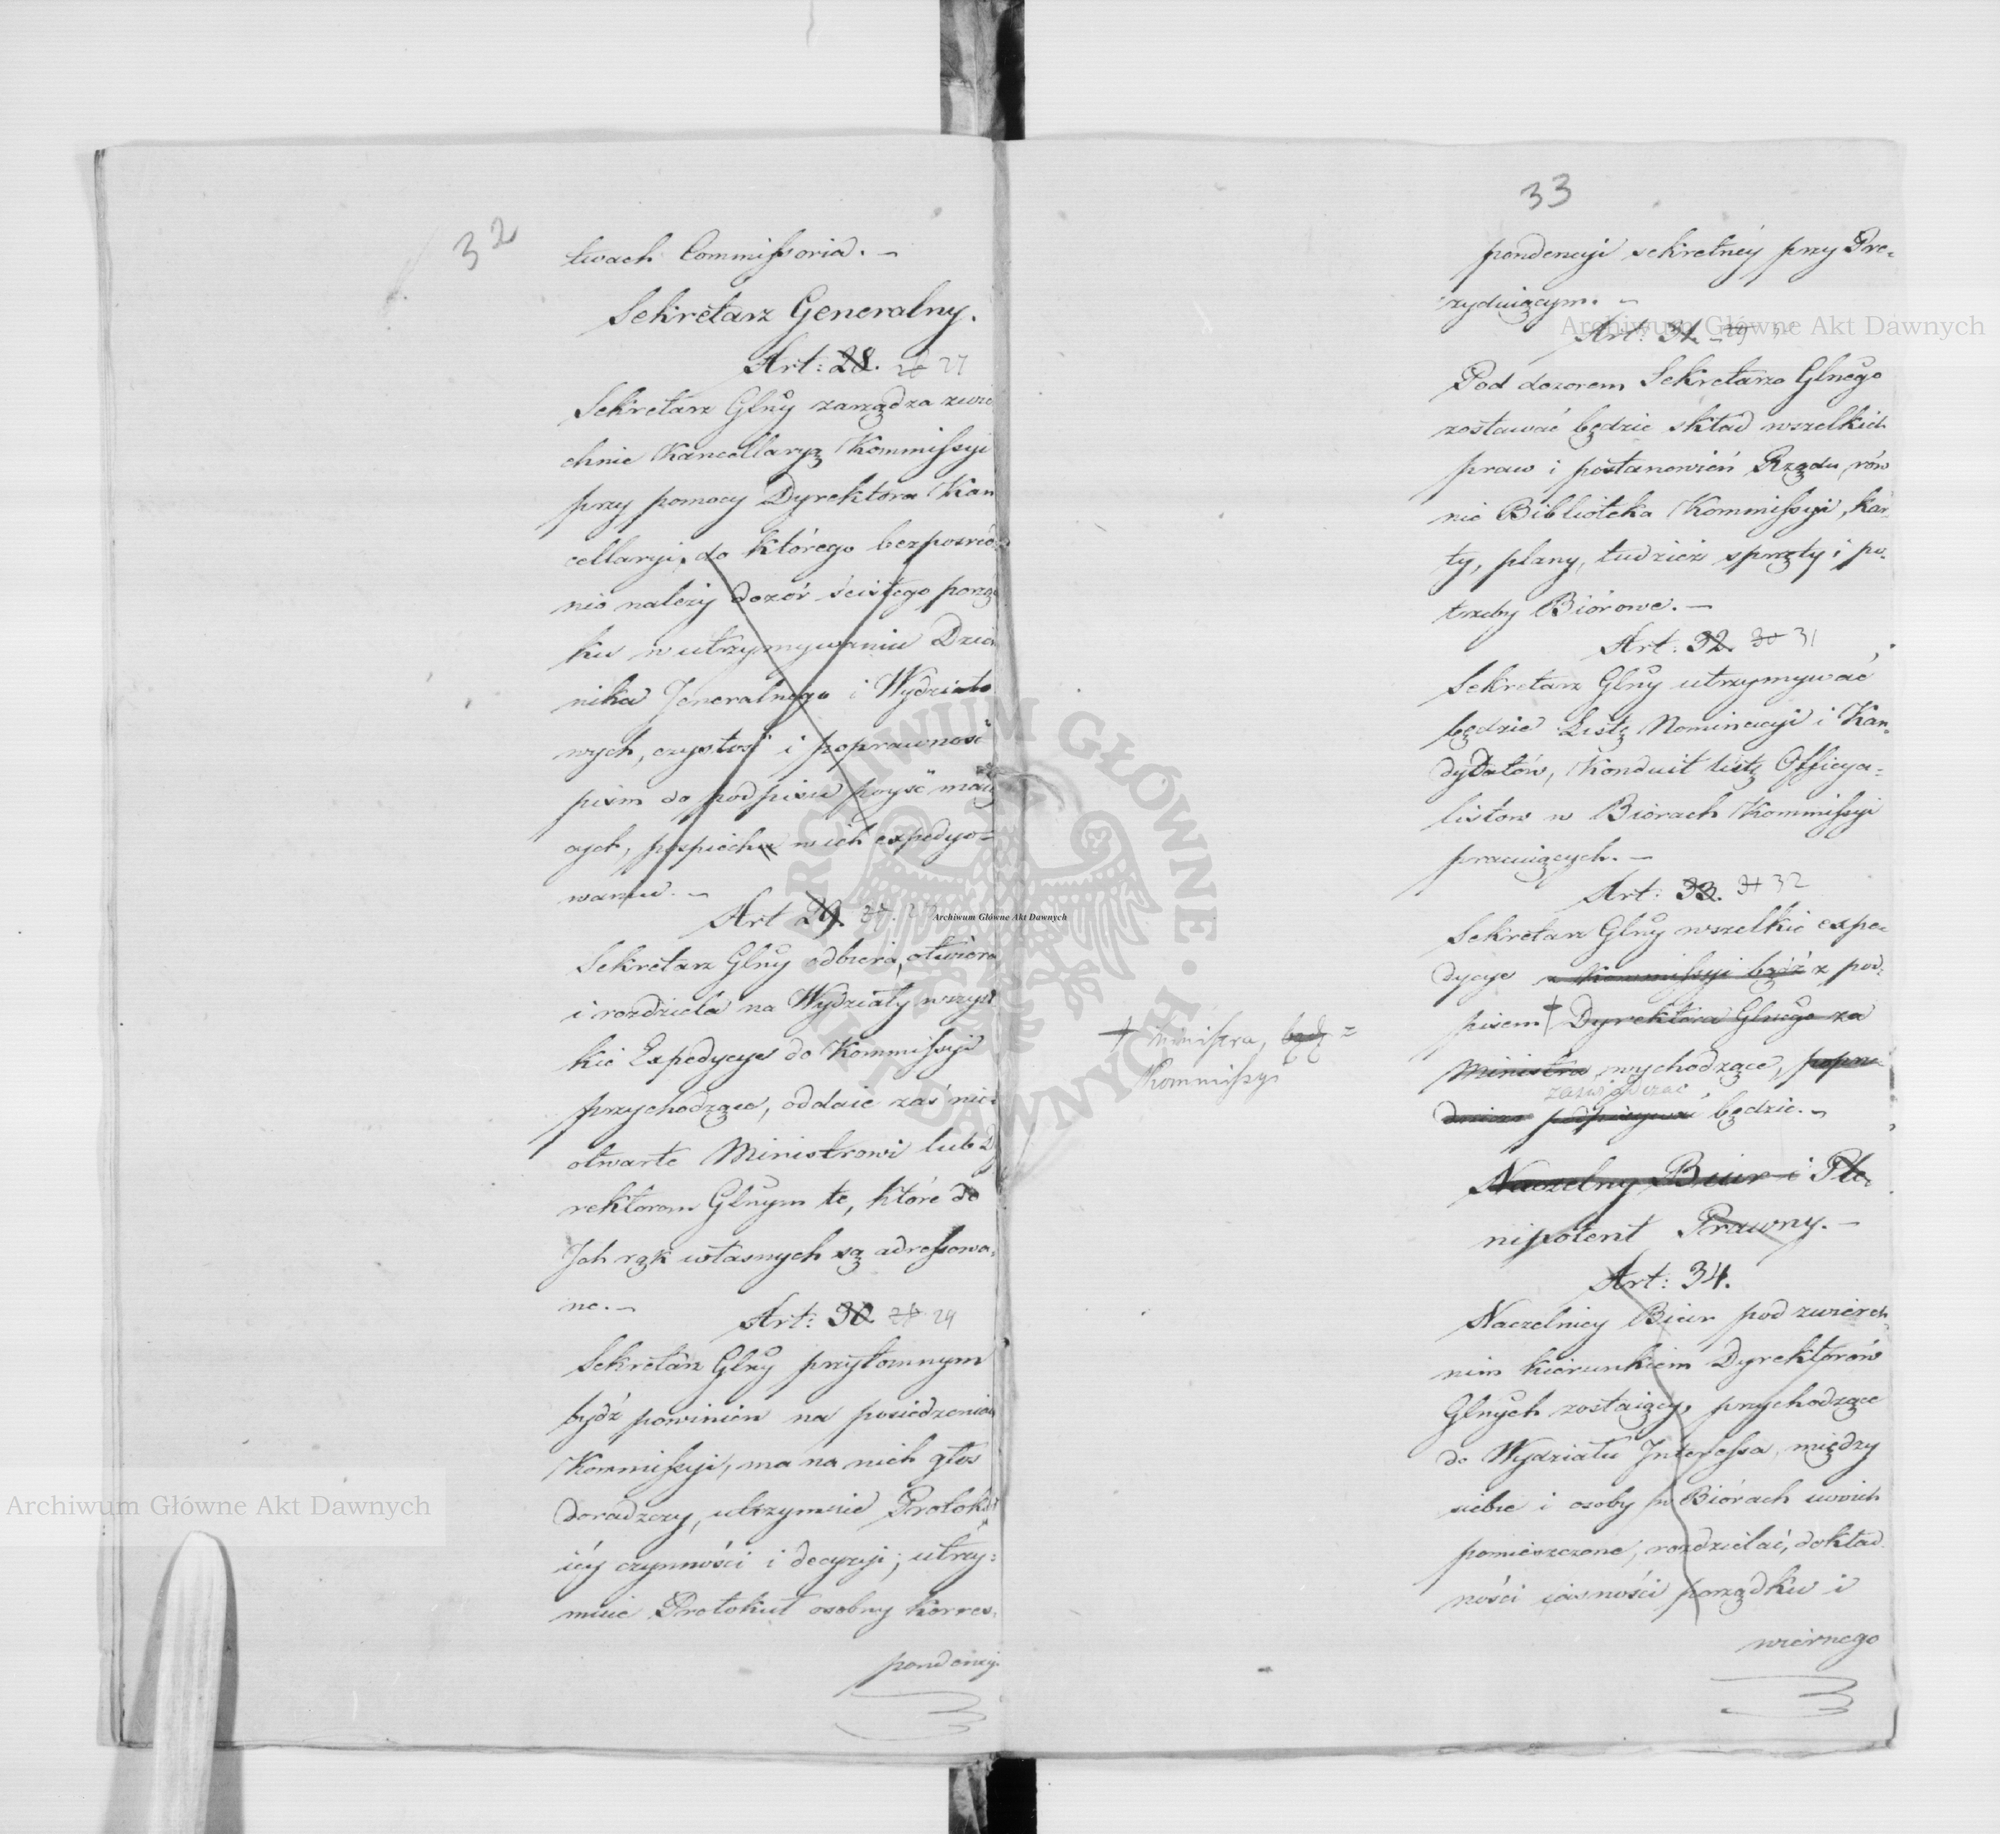 32
twach Commissoria. –
Sekretarz Generalny.
Art: 28. 26 27
Sekretarz Glny zarządza zwie
chnie Kancellaryą Kommissyi
przy pomocy Dyrektora Kan
cellaryi, do którego bezpośred
nio należy dozór ścisłego porzą
ku w utrzymywaniu Dzien
nika Jeneralnego i Wydziało
wych, czystość i poprawność
pism do podpisu pójść maią
cych, pospiechu w ich expedyo=
waniu. –
Art 29. 27.
Sekretarz Glny odbiera, otwiera
i rozdziela na Wydziały wszyst
kie Expedycye do Kommissyi
przychodzące, oddaie zaś nie
otwarte Ministrowi lub Dy
rektorom Glnym te, które do
Ich rąk własnych są adressowa=
ne. –
Art: 30. 28 29
Sekretarz Glny przytomnym
bydź powinien na posiedzeniu
Kommissyi, ma na nich głos
doradzczy, utrzymuie Protokół
iéy czynności i decyzyi; utrzy=
muie Protokuł osobny korres=
pondencyi
33
pondencyi sekretnéy przy Pre=
zyduiącym. –
Art: 31. 29
Pod dozorem Sekretarza Glnego
zostawać będzie skład wszelkich
praw i postanowień Rządu, rów
nie Biblioteka Kommissyi, kar
ty, plany, tudzież sprzęty i po=
trzeby Biórowe. –
Art: 32. 30 31
Sekretarz Glny utrzymywać
będzie Listę Nominacyi i Kan=
dydatów, Konduit listę Officya=
listów w Biórach Kommissyi
pracuiących. –
Art: 33. 31 32
Sekretarz Glny wszelkie expe=
dycye z Kommissyi bądź z pod=
pisem + Dyrektora Glnego za
Ministra wychodzące, poprze
zaświadczać
dnicze podpisywać będzie. –
+ Ministra, bądź =
Kommissyi
Naczelny Biur i Ple=
nipotent Prawny. –
Art: 34.
Naczelnicy Biur pod zwierzch
nim kierunkiem Dyrektorów
Glnych zostaiący, przychodzące
do Wydziału Interessa, między
siebie i osoby w Biórach swoich
pomieszczone, rozdzielać, dokład
ności iasności porządku i
wiernego
Archiwum Główne Akt Dawnych
Archiwum Główne Akt Dawnych
Archiwum Główne Akt Dawnych
ARCHIWUM GŁÓWNE · AKT DAWNYCH ·